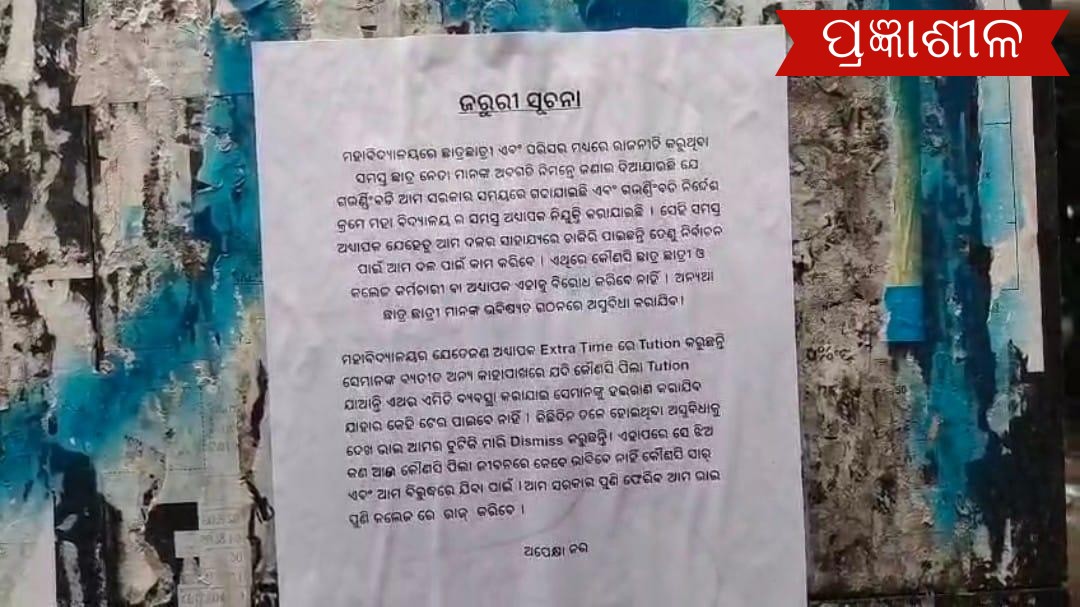 ପ୍ରଜ୍ଞାଶୀଳ
ଜରୁରୀ ସୂଚନା
ମହାବିଦ୍ୟାଳୟରେ ଛାତ୍ରଛାତ୍ରୀ ଏବଂ ପରିସର ମଧ୍ୟରେ ରାଜନୀତି କରୁଥିବା
ସମସ୍ତ ଛାତ୍ର ନେତା ମାନଙ୍କ ଅବଗତି ନିମନ୍ତେ ଜଣାଇ ଦିଆଯାଉଛି ଯେ
ଗଭର୍ଣ୍ଣିଂବଡି ଆମ ସରକାର ସମୟରେ ଗଢାଯାଇଛି ଏବଂ ଗଭର୍ଣ୍ଣିଂବଡି ନିର୍ଦେଶ
କ୍ରମେ ମହା ବିଦ୍ୟାଳୟ ର ସମସ୍ତ ଅଧାପକ ନିଯୁକ୍ତି କରାଯାଇଛି । ସେହି ସମସ୍ତ
ଅଧାପକ ଯେହେତୁ ଆମ ଦଳର ସାହାଯ୍ୟରେ ଚାକିରି ପାଇଛନ୍ତି ତେଣୁ ନିର୍ବାଚନ
ପାଇଁ ଆମ ଦଳ ପାଇଁ କାମ କରିବେ । ଏଥିରେ କୌଣସି ଛାତ୍ର ଛାତ୍ରୀ ଓ
କଲେଜ କର୍ମଚାରୀ ବା ଅଧାପକ ଏହାକୁ ବିରୋଧ କରିବେ ନାହିଁ । ଅନ୍ୟଥା
ଛାତ୍ର ଛାତ୍ରୀ ମାନଙ୍କ ଭବିଷ୍ୟତ ଗଠନରେ ଅସୁବିଧା କରାଯିବ।
ମହାବିଦ୍ୟାଳୟର ଯେତେଜଣ ଅଧ୍ୟାପକ Extra Time ରେ Tution କରୁଛନ୍ତି
ସେମାନଙ୍କ ବ୍ୟତୀତ ଅନ୍ୟ କାହାପାଖରେ ଯଦି କୌଣସି ପିଲା Tution
ଯାଆନ୍ତି ଏଥର ଏମିତି ବ୍ୟବସ୍ଥା କରାଯାଇ ସେମାନଙ୍କୁ ହଇରାଣ କରାଯିବ
ଯାହାର କେହି ଟେର ପାଇବେ ନାହିଁ । କିଛିଦିନ ତଳେ ହୋଇଥିବା ଅସୁବିଧାକୁ
ଦେଖ ଭାଇ ଆମର ଚୁଟିକି ମାରି Dismiss କରୁଛନ୍ତି। ଏହାପରେ ସେ ଝିଅ
କଣ ଆଉ କୌଣସି ପିଲା ଜୀବନରେ କେବେ ଭାବିବେ ନାହିଁ କୌଣସି ସାର୍
ଏବଂ ଆମ ବିରୁଦ୍ଧରେ ଯିବା ପାଇଁ ।ଆମ ସରକାର ପୁଣି ଫେରିବ ଆମ ଭାଇ
ପୁଣି କଲେଜ ରେ ରାଜ୍ କରିବେ ।
ଅପେକ୍ଷା କର